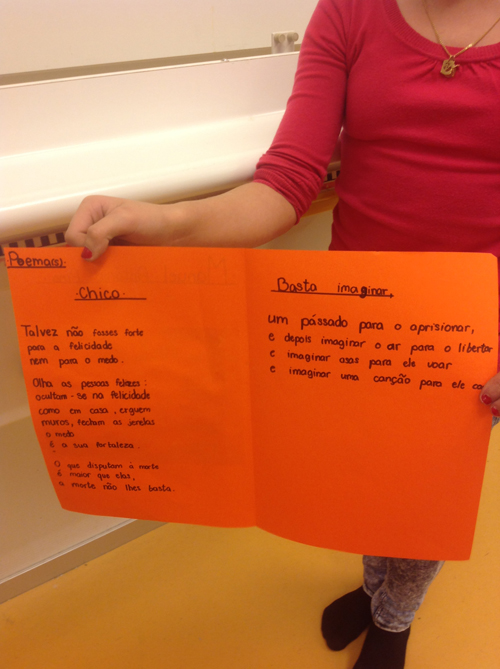 Poema(s).
Chico.
Talvez não fosses forte
para a felicidade
nem para o medo.
Olha as pessoas felizes:
ocultam-se na felicidade
como em casa, erguem
muros, fecham as janelas
o medo
é a sua fortaleza.
O que disputam à morte
é maior que elas,
a morte não lhes basta.
Basta imaginar,
um pássado para o aprisionar,
e depois imaginar o ar para o libertar
e imaginar asas para ele voar
e imaginar uma canção para ele